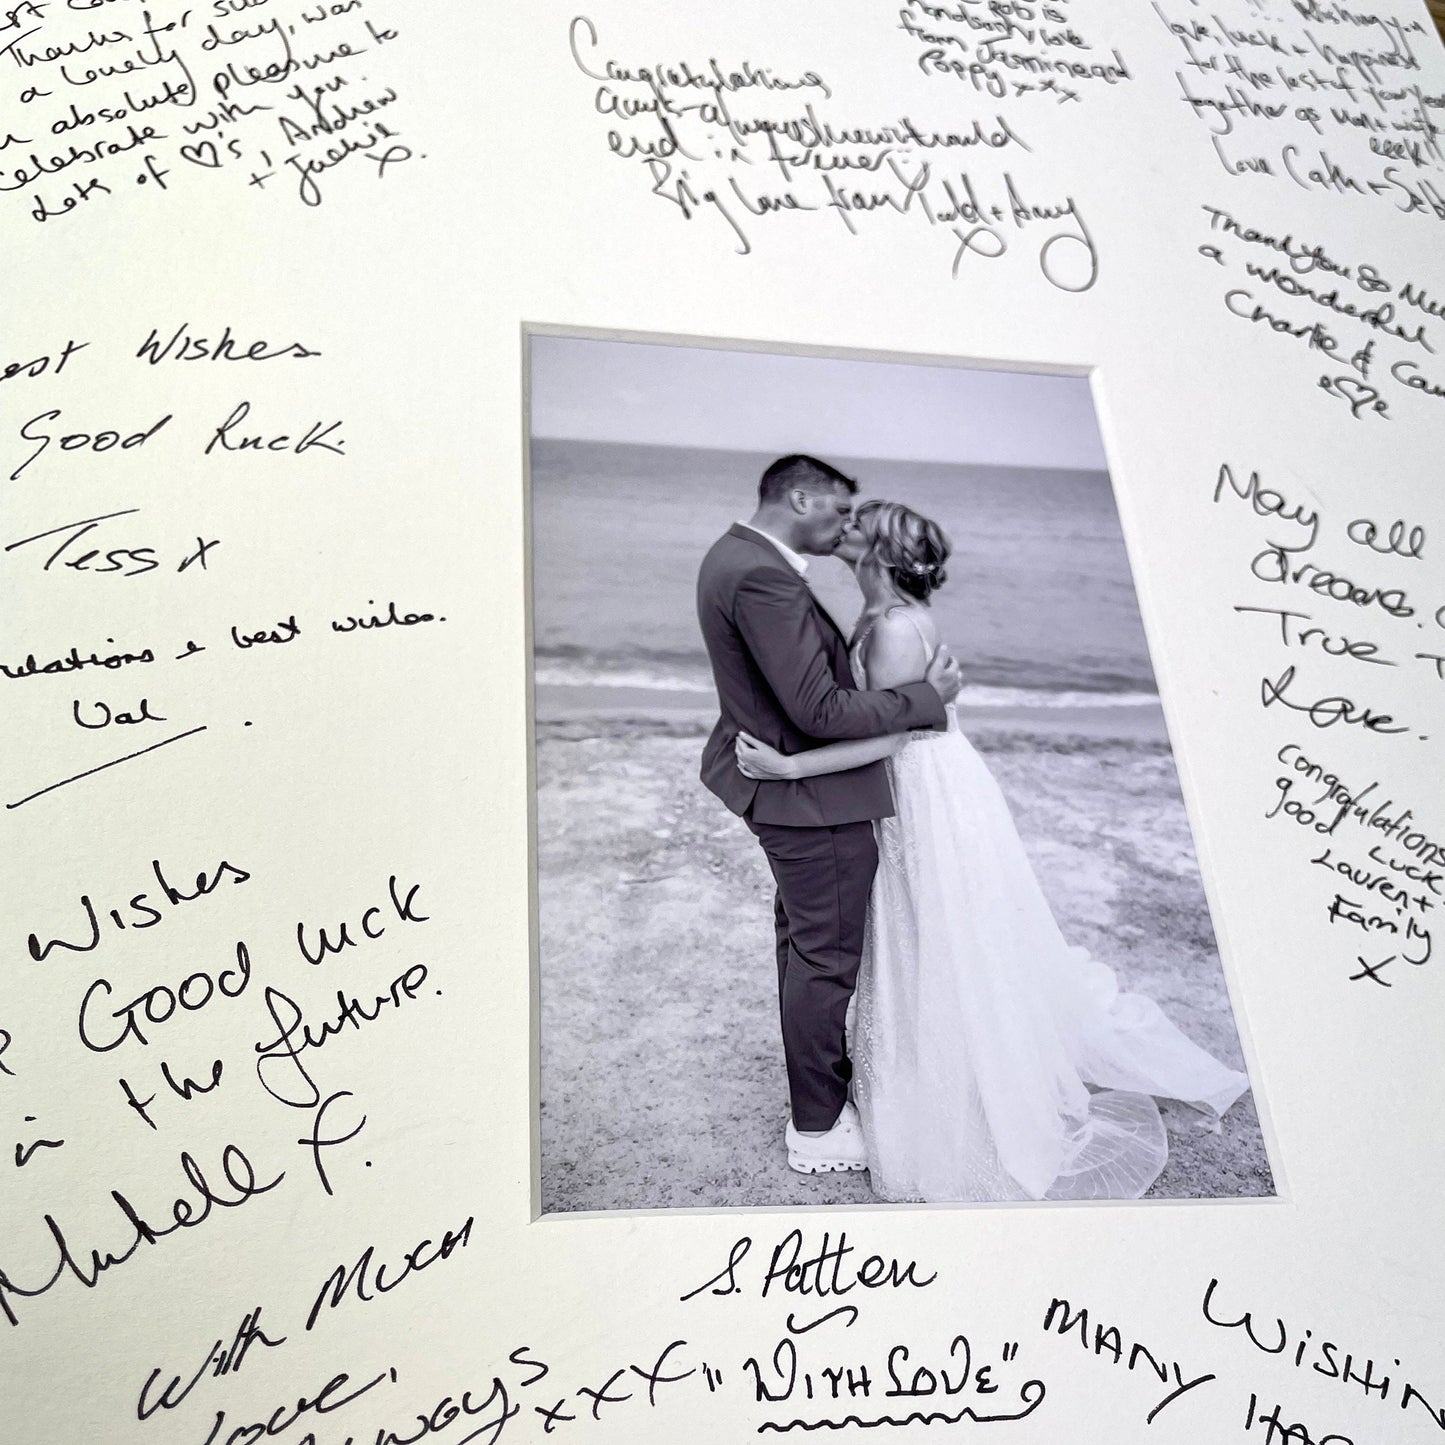 Thanks for such
a lovely day, was
an absolute pleasure to
celebrate with you.
Lots of ♡'s, Andrew
+ Jackie
x.
Congratulations
always knew it would
end in
Big love from Todd + Amy
x
Rob is
handsome love
from Jasmine and
Poppy xxx
Wishing you
love, luck + happiness
for the rest of your years
together as
eeek!!
Love Cath + Seb
Thank you so Mu
a wonderful
Charlie & Cam
♡
est Wishes
Good Luck.
Tess x
ulations & best wishes.
Val
May all
dreams.
True
Love.
Congratulations
good Luck
Lauren +
Family
x
Wishes
Good luck
in the future.
Michelle x.
With Much
Love,
Always
xxx
S. Patten
"WITH LOVE"
WISHIN
MANY HAP